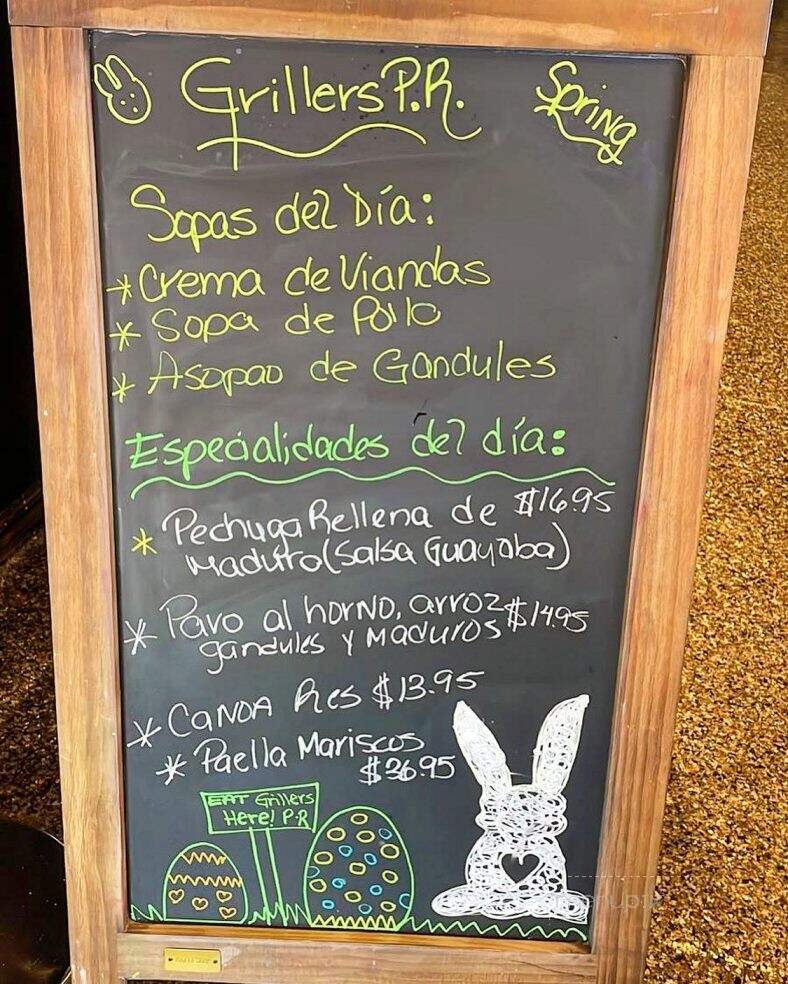 Grillers P.R.
Spring
Sopas del Día:
* Crema de Viandas
* Sopa de Pollo
* Asopao de Gandules
Especialidades del día:
* Pechuga Rellena de $16.95
Maduro (Salsa Guayaba)
* Pavo al horno, arroz $14.95
gandules y Maduros
* CANOA Res $13.95
* Paella Mariscos
$36.95
EAT Grillers
Here! P.R